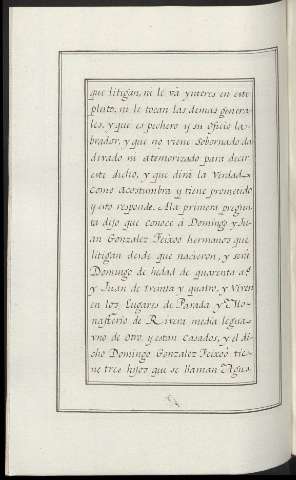 que litigan, ni le và ynteres en este
pleito, ni le tocan las demas genera-
les, y que es pechero y su oficio la-
brador, y que no viene sobornado da
divado ni atemorizado para decir
este dicho, y que dirà la Verdad
como acostumbra y tiene prometido
y esto responde. A la primera pregun
ta dijo que conoce à Domingo y Ju-
an Gonzalez Feixoò hermanos que
litigan desde que nacieron, y serà
Domingo de hedad de quarenta a.s
y Juan de treinta y quatro, y viven
en los Lugares de Parada y Mo-
nasterio de R. viene media legua
uno de otro, y estan casados, y el di-
cho Domingo Gonzalez Feixoò tie-
ne tres hijos que se llaman Agus